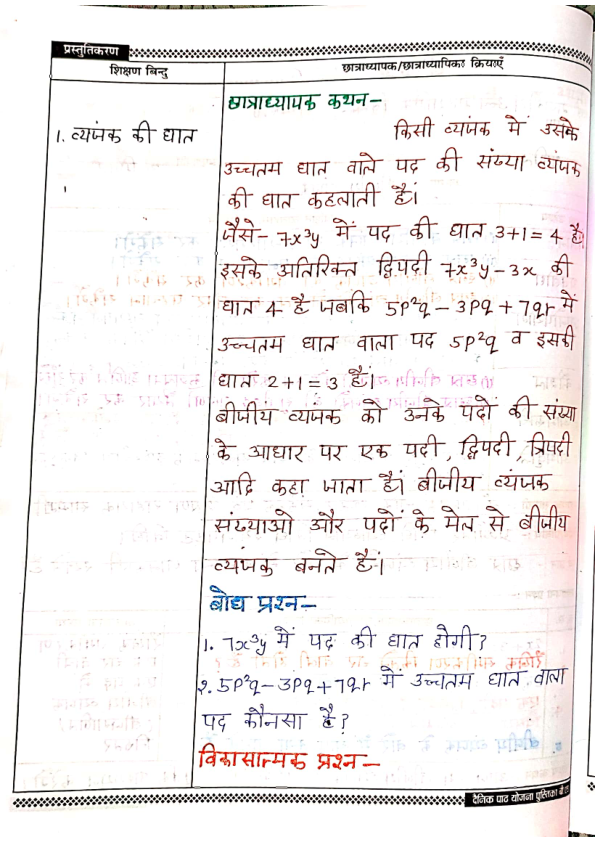 प्रस्तुतिकरण
शिक्षण बिन्दु
छात्राध्यापक/छात्राध्यापिका क्रियाएँ
छात्राध्यापक कथन-
1. व्यंजक की घात
किसी व्यंजक में उसके
उच्चतम घात वाले पद की संख्या व्यंजक
की घात कहलाती है।
जैसे- 7x³y में पद की घात 3+1=4 है
इसके अतिरिक्त द्विपदी 7x³y-3x की
घात 4 है जबकि 5p²q-3pq+7qr में
उच्चतम घात वाला पद 5p²q व इसकी
घात 2+1=3 है।
बीजीय व्यंजक को उनके पदों की संख्या
के आधार पर एक पदी, द्विपदी, त्रिपदी
आदि कहा जाता है। बीजीय व्यंजक
संख्याओ और पदों के मेल से बीजीय
व्यंजक बनते है।
बोध प्रश्न-
1. 7x³y में पद की घात होगी?
2. 5p²q-3pq+7qr में उच्चतम घात वाला
पद कौनसा है?
विकासात्मक प्रश्न-
दैनिक पाठ योजना पुस्तिका